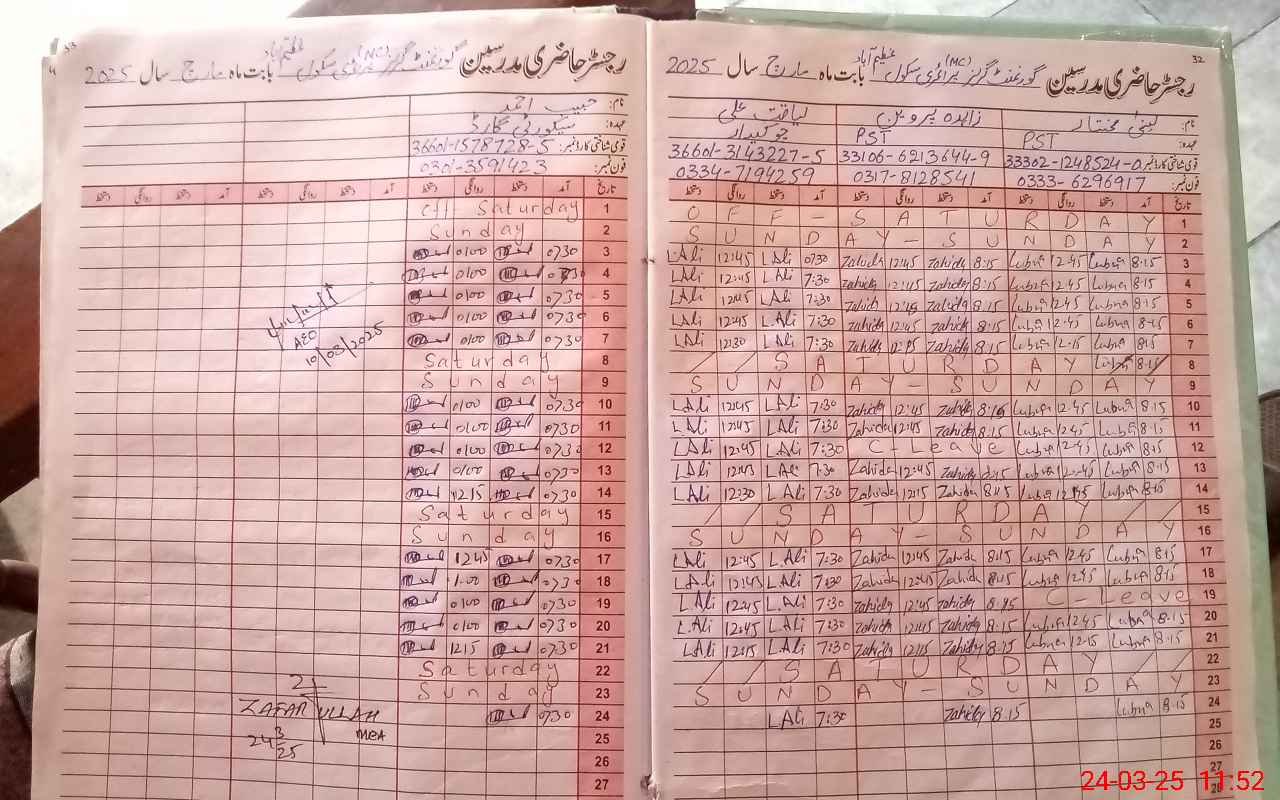 32
رجسٹر حاضری مدرسین گورنمنٹ گرلز پرائمری سکول (MC) عظیم آباد بابت ماہ مارچ سال 2025
نام: لبنیٰ مختار زاہدہ پروین لیاقت علی
عہدہ: PST PST چوکیدار
قومی شناختی کارڈ نمبر: 33302-1248524-0 33106-6213644-9 36601-3143227-5
فون نمبر: 0333-6296917 0317-8128541 0334-7194259
تاریخ آمد دستخط روانگی دستخط آمد دستخط روانگی دستخط آمد دستخط روانگی دستخط
OFF - SATURDAY 1
SUNDAY - SUNDAY 2
LAli 12:45 LAli 0730 Zahida 12:45 Zahida 8:15 Lubna 12:45 Lubna 8:15 3
LAli 12:45 LAli 7:30 Zahida 12:45 Zahida 8:15 Lubna 12:45 Lubna 8:15 4
LAli 12:45 LAli 7:30 Zahida 12:45 Zahida 8:15 Lubna 12:45 Lubna 8:15 5
LAli 12:45 L.Ali 7:30 Zahida 12:45 Zahida 8:15 Lubna 12:45 Lubna 8:15 6
LAli 12:30 LAli 7:30 Zahida 12:15 Zahida 8:15 Lubna 12:15 Lubna 8:15 7
SATURDAY Lubna 8:15 8
SUNDAY - SUNDAY 9
LAli 12:45 LAli 7:30 Zahida 12:45 Zahida 8:15 Lubna 12:45 Lubna 8:15 10
LAli 12:45 LAli 7:30 Zahida 12:45 Zahida 8:15 Lubna 12:45 Lubna 8:15 11
LAli 12:45 LAli 7:30 C-Leave Lubna 12:45 Lubna 8:15 12
LAli 12:45 LAli 7:30 Zahida 12:45 Zahida 8:15 Lubna 12:45 Lubna 8:15 13
LAli 12:30 LAli 7:30 Zahida 12:15 Zahida 8:15 Lubna 12:15 Lubna 8:15 14
SATURDAY 15
SUNDAY - SUNDAY 16
LAli 12:45 L.Ali 7:30 Zahida 12:45 Zahida 8:15 Lubna 12:45 Lubna 8:15 17
LAli 12:45 LAli 7:30 Zahida 12:45 Zahida 8:15 Lubna 12:45 Lubna 8:15 18
L.Ali 12:45 L.Ali 7:30 Zahida 12:45 Zahida 8:15 C-Leave 19
L.Ali 12:45 L.Ali 7:30 Zahida 12:45 Zahida 8:15 Lubna 12:45 Lubna 8:15 20
LAli 12:15 LAli 7:30 Zahida 12:15 Zahida 8:15 Lubna 12:15 Lubna 8:15 21
SATURDAY 22
SUNDAY - SUNDAY 23
LAli 7:30 Zahida 8:15 Lubna 8:15 24
25
26
27
28
33
رجسٹر حاضری مدرسین گورنمنٹ گرلز پرائمری سکول (MC) عظیم آباد بابت ماہ مارچ سال 2025
نام: حبیب احمد
عہدہ: سیکورٹی گارڈ
قومی شناختی کارڈ نمبر: 36601-1578728-5
فون نمبر: 0301-3591423
تاریخ آمد دستخط روانگی دستخط آمد دستخط روانگی دستخط آمد دستخط روانگی دستخط
Off Saturday 1
Sunday 2
0100 0730 3
0100 0730 4
0100 0730 5
0100 0730 6
0100 0730 7
Saturday 8
Sunday 9
0100 0730 10
0100 0730 11
0100 0730 12
0100 0730 13
1215 0730 14
Saturday 15
Sunday 16
1245 0730 17
0100 0730 18
0100 0730 19
0100 0730 20
1215 0730 21
Saturday 22
Sunday 23
0730 24
25
26
27
AEO
10/03/2025
ZAFAR ULLAH
MEA
24 3/25
24-03-25 11:52